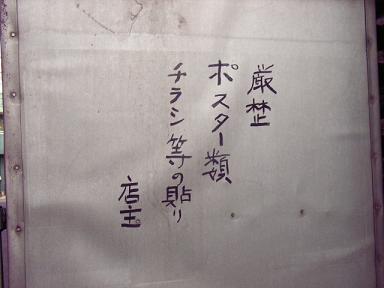 厳禁
ポスター類
チラシ等の貼り
店主。